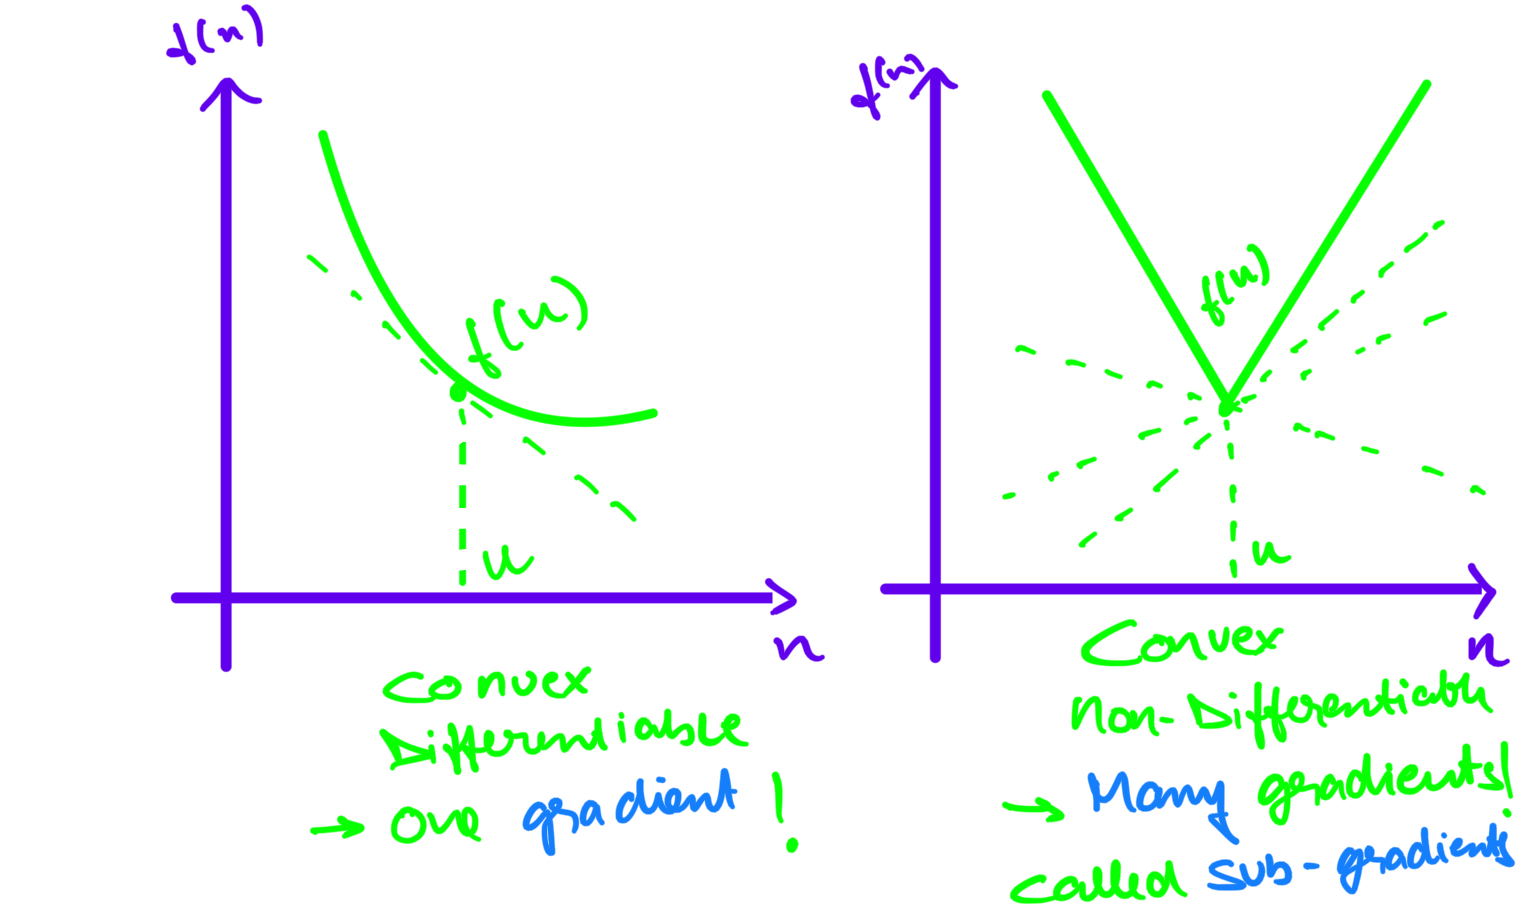 f(x)
f(u)
u
x
Convex
Differentiable
→ One gradient !
f(x)
f(u)
u
x
Convex
Non-Differentiable
→ Many gradients!
called sub-gradients